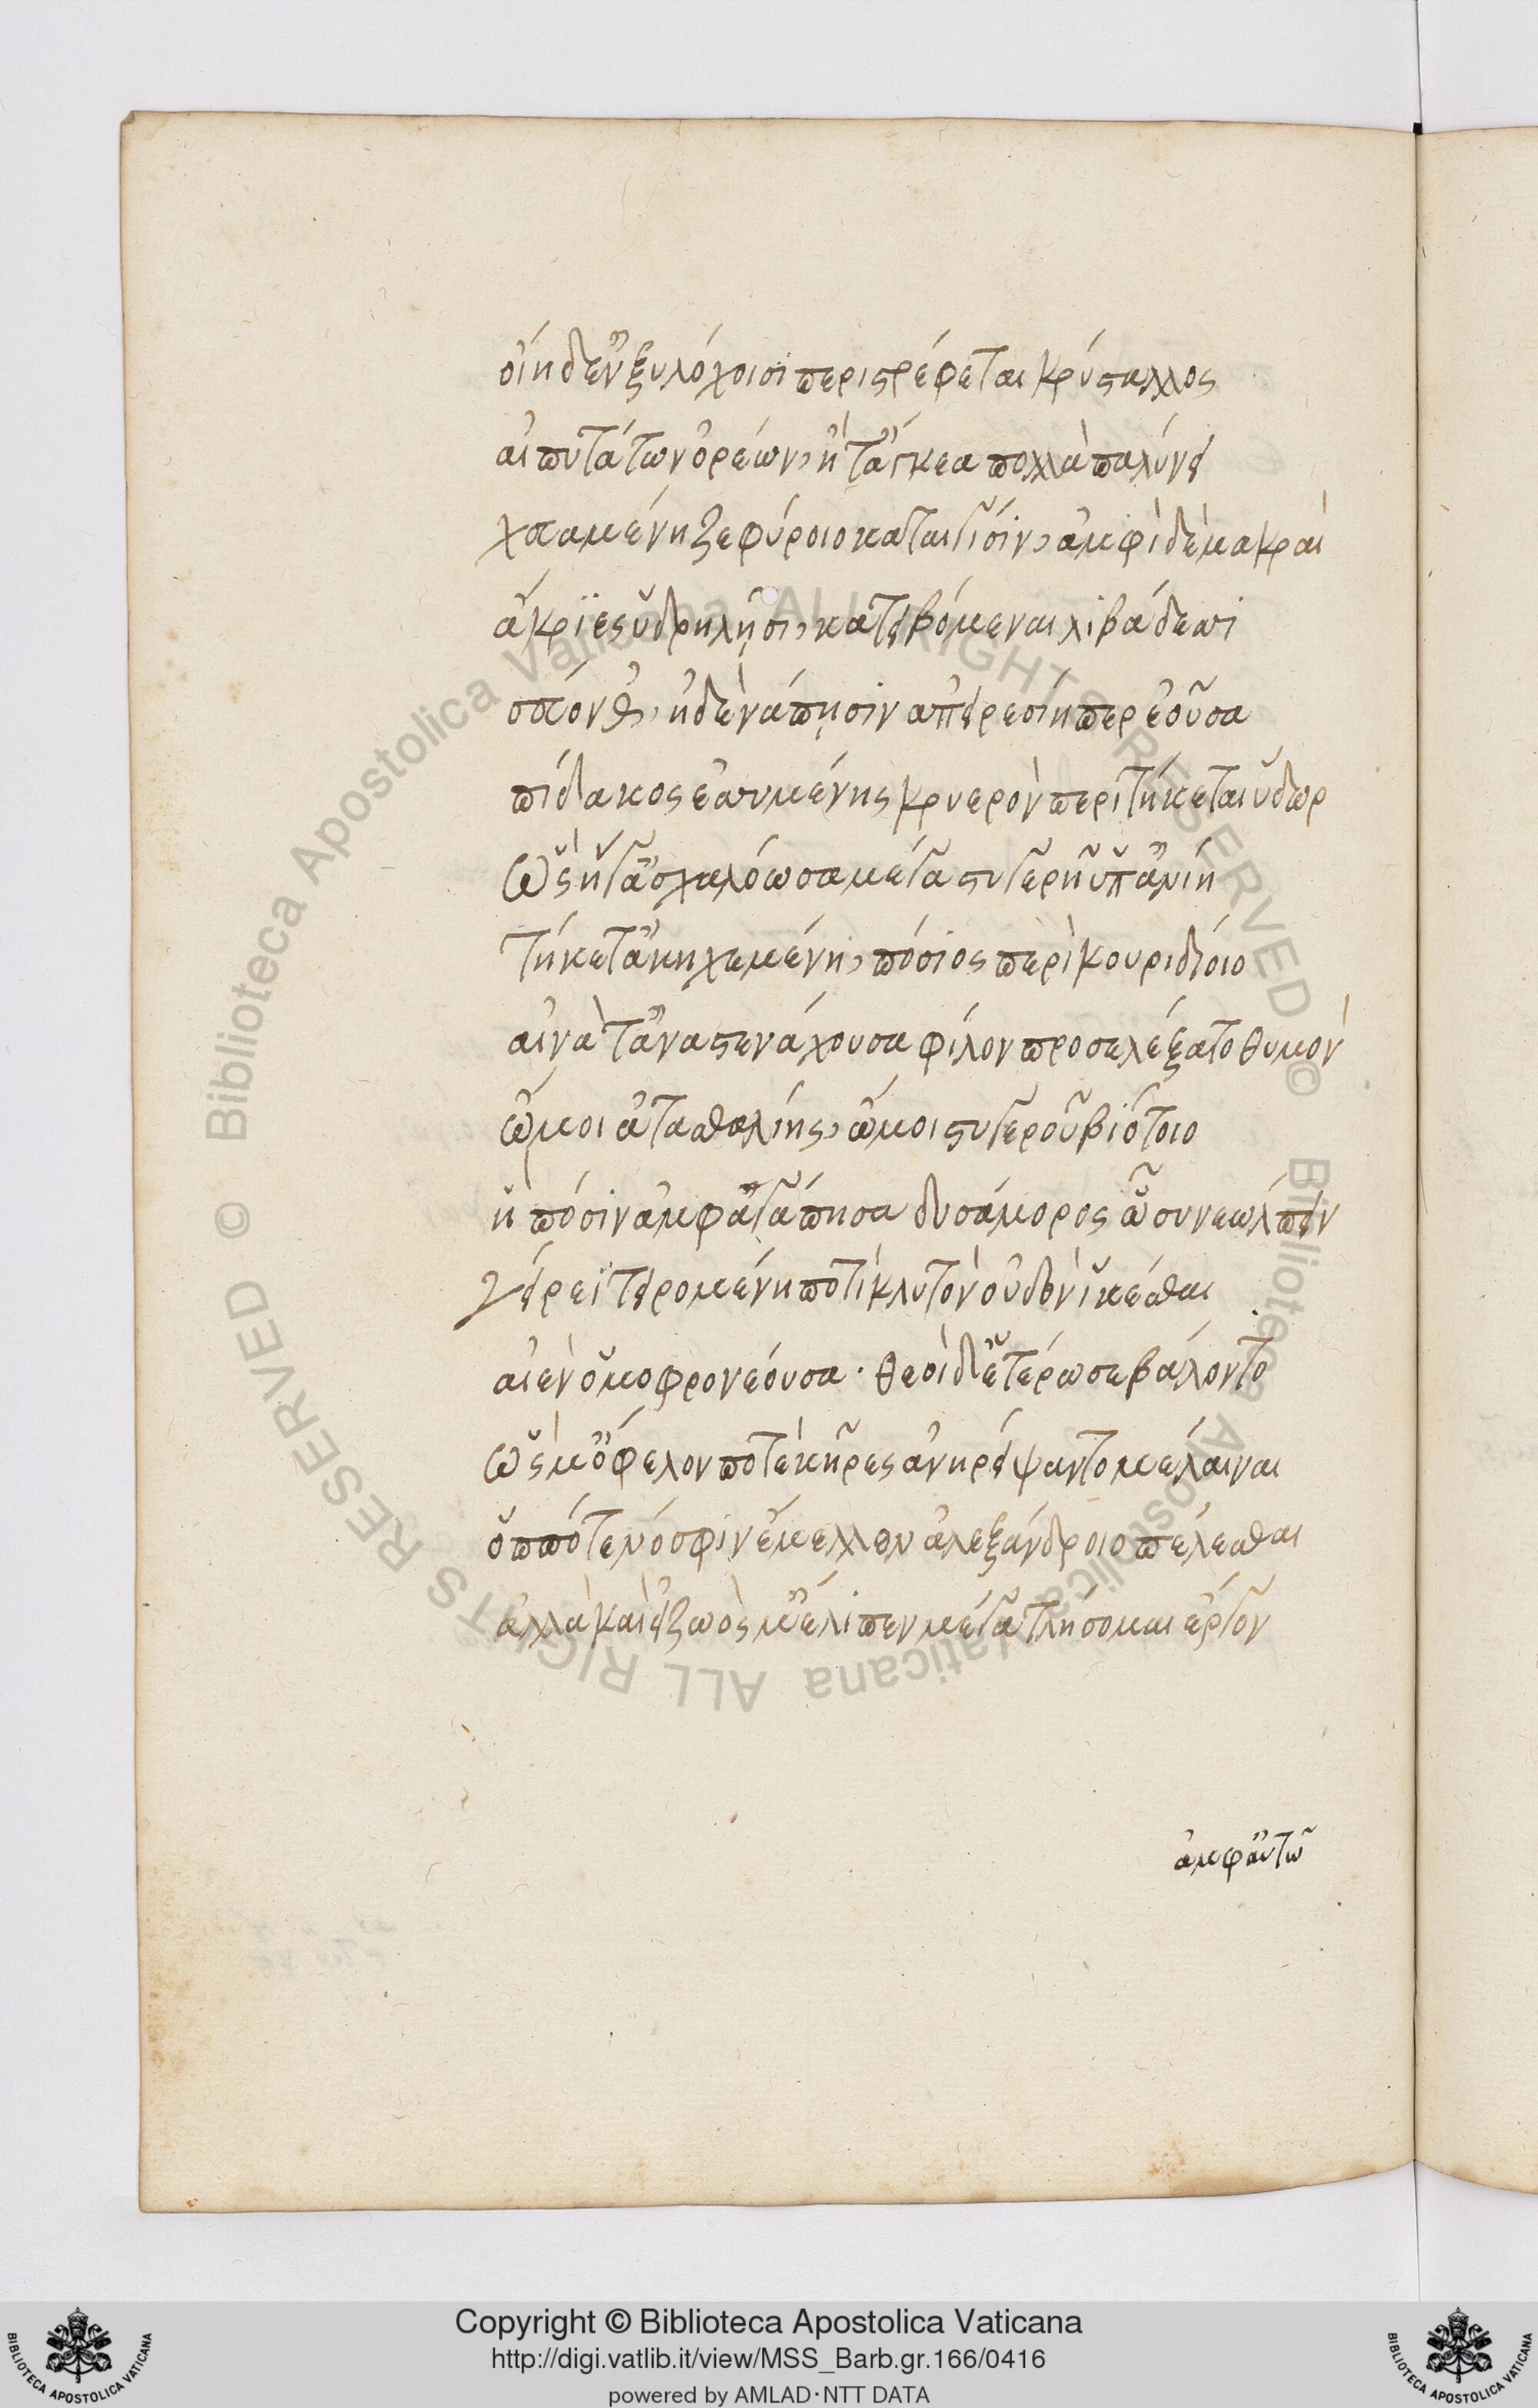 οἵη δ' ἐν ξυλόχοισι περιστρέφεται κρύσταλλος
αἰπυτάτων ὀρέων, ἥ τ' ἄγκεα πολλὰ παλύνει
χευαμένη ζεφύροιο καταιγίσιν, ἀμφὶ δὲ μακραὶ
ἄκριες ὑδρηλῇσι κατειβόμεναι λιβάδεσσι
δεύονθ', ἡ δὲ νάπῃσιν ἀπειρεσίη περ ἐοῦσα
πίδακος ἐσσυμένης κρυερὸν περιτήκεται ὕδωρ
ὣς ἥ γ' ἀσχαλόωσα μέγα στυγερῇ ὑπ' ἀνίῃ
τήκετ' ἀκηχεμένη, πόσιος περὶ κουριδίοιο
αἰνὰ δ' ἀναστενάχουσα φίλον προσελέξατο θυμόν
ὤμοι ἀτασθαλίης, ὤμοι στυγεροῦ βιότοιο
ἣ πόσιν ἀμφαγάπησα δυσάμμορος ᾧ σὺν ἐώλπειν
γήρεϊ τειρομένη ποτὶ κλυτὸν οὐδὸν ἱκέσθαι
αἰὲν ὁμοφρονέουσα· θεοὶ δ' ἑτέρωσε βάλοντο
ὥς μ' ὄφελόν ποτε κῆρες ἀνηρείψαντο μέλαιναι
ὁππότε νόσφιν ἔμελλον ἀλεξάνδροιο πέλεσθαι
ἀλλὰ καὶ εἰ ζωός μ' ἔλιπεν μέγα τλήσομαι ἔργον
ἀμφ' αὐτῷ
Copyright © Biblioteca Apostolica Vaticana
http://digi.vatlib.it/view/MSS_Barb.gr.166/0416
powered by AMLAD·NTT DATA